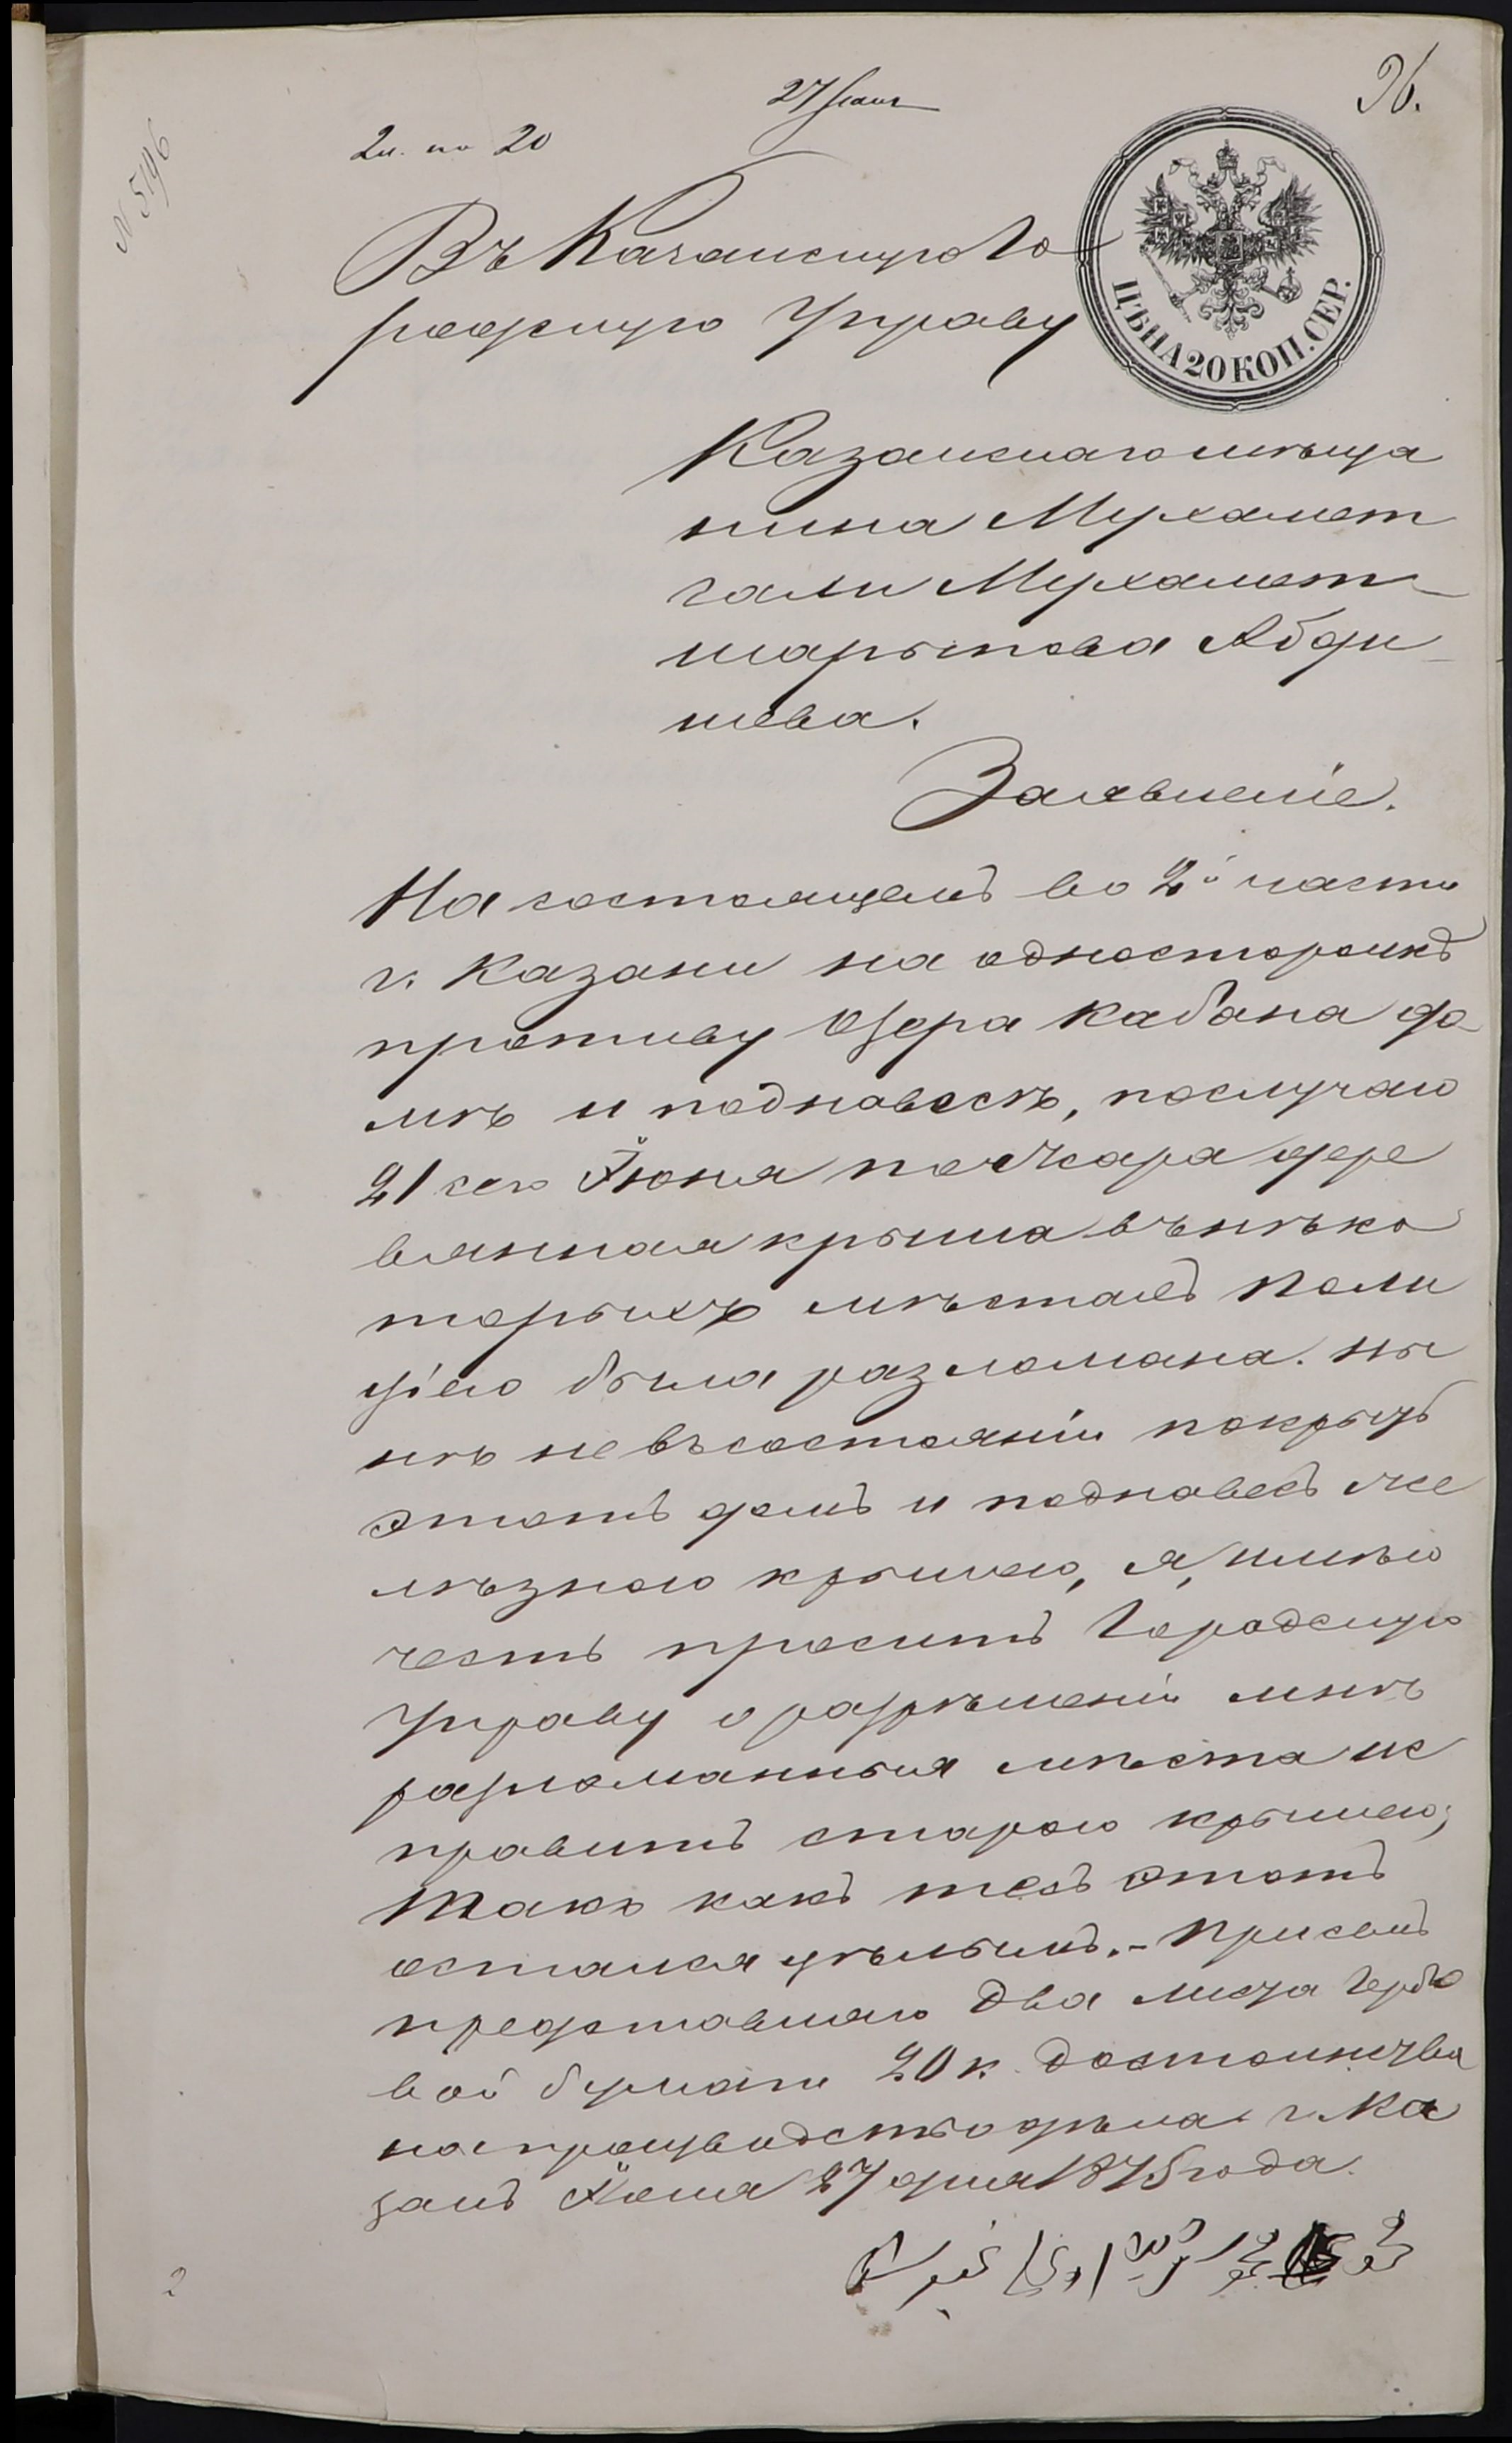 27 Іюня
96.
2 л. по 20
N 5196
Въ Казанскую Го
родскую Управу
ЦѢНА 20 КОП. СЕР.
Казанскаго мѣща
нина Мухамет
гали Мухамет-
шарыпова Абди-
шева.
Заявленіе.
На состоящемъ во 2й части
г. Казани на односторонкѣ
противу Озера Кабана до
мѣ и поднавесѣ, послучаю
21 сего Іюня пожара дере
вянная крыша внѣко
торыхъ мѣстахъ Поли
ціею была разломана. ны
нѣ не въсостояніи покрыть
этотъ домъ и поднавесъ же
лѣзною крышею, я, имѣю
честь просить Городскую
Управу о разрѣшеніи мнѣ
разломанныя мѣста ис
править старою крышею,
такъ какъ тесъ этотъ
остался цѣлымъ. - При семъ
представляю два листа гербо
вой бумаги 20 к. достоинства
на производство дѣла г. Ка
зань Іюня 27 дня 1875 года.
2